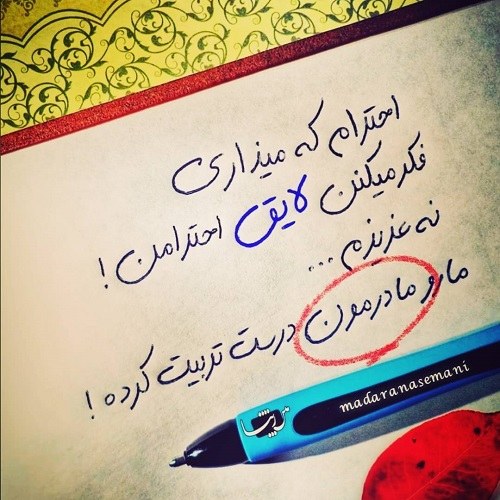 احترام که میزاری
فکر میکنن لایق احترامن!
نه عزیزم ...
مارو مادرمون درست تربیت کرده!
madaranasemani